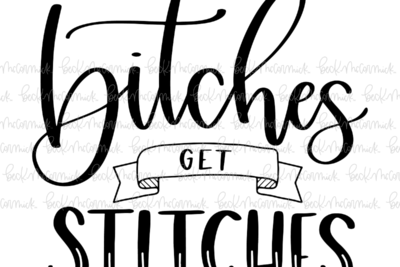 bitches
GET
STITCHES